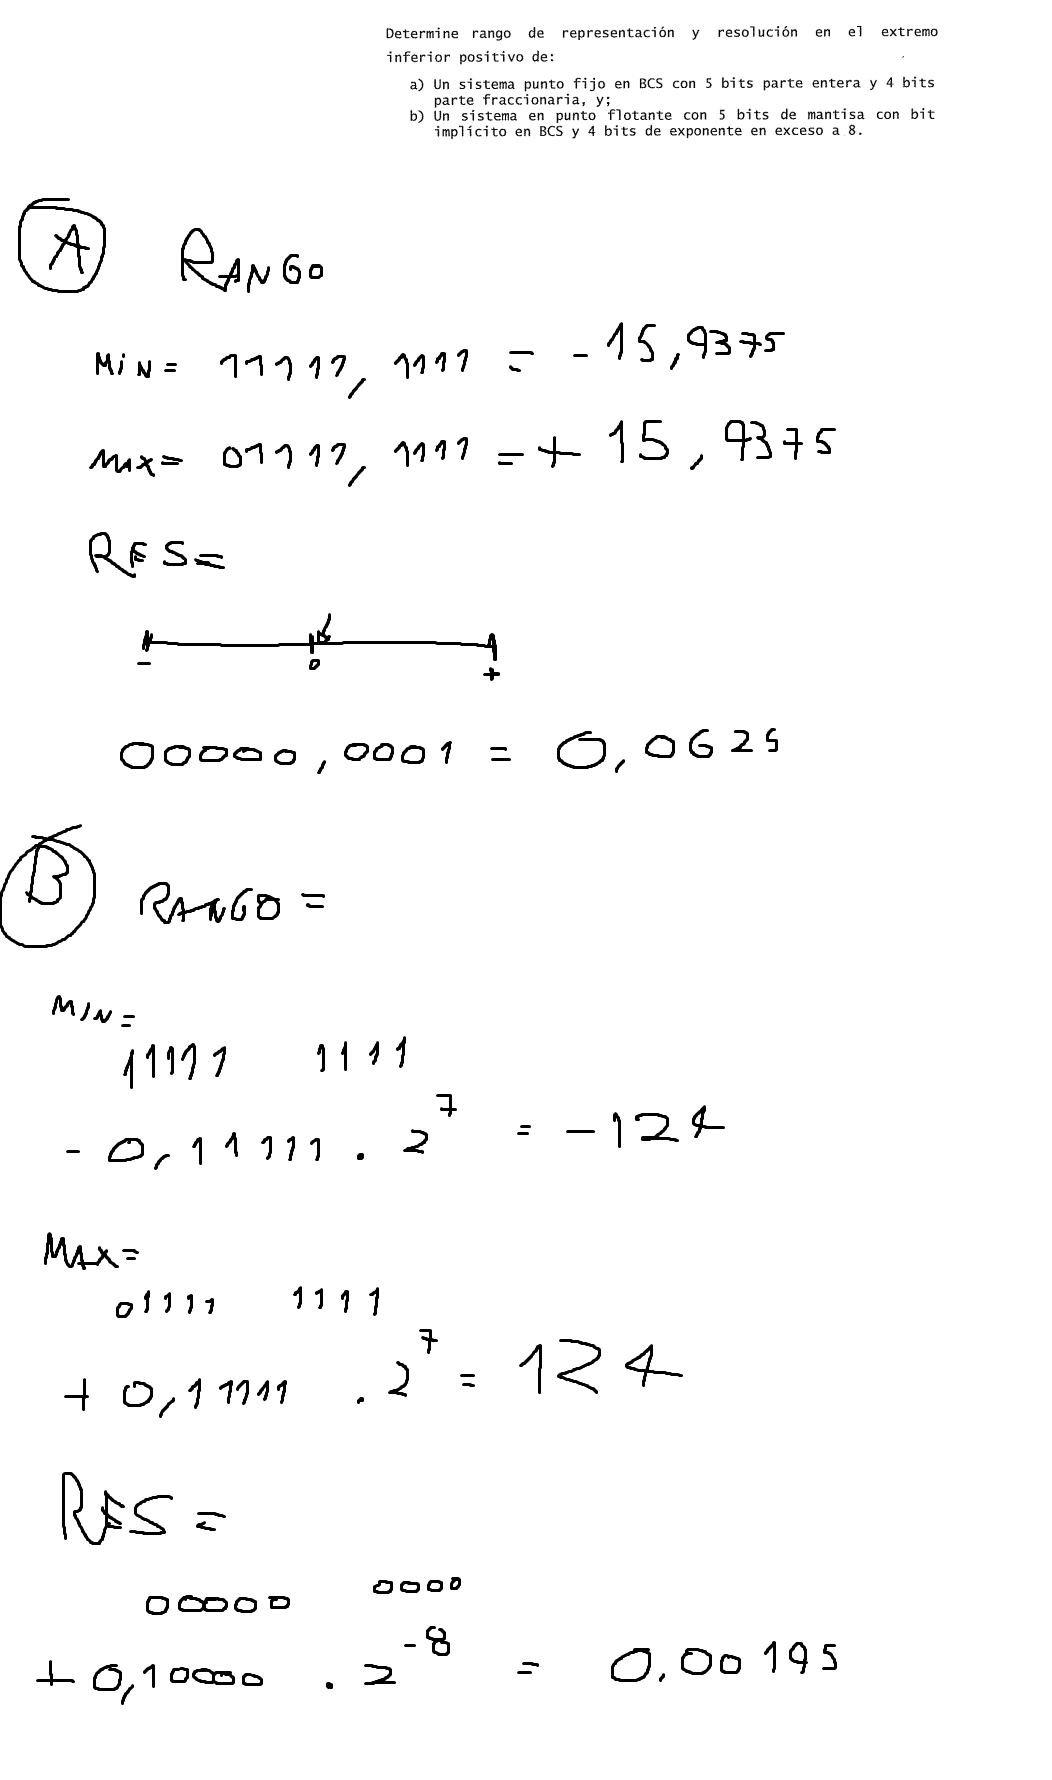 Determine rango de representación y resolución en el extremo
inferior positivo de:
a) Un sistema punto fijo en BCS con 5 bits parte entera y 4 bits
parte fraccionaria, y;
b) Un sistema en punto flotante con 5 bits de mantisa con bit
implícito en BCS y 4 bits de exponente en exceso a 8.
A RANGO
MiN = 11111, 1111 = - 15,9375
MAX = 01111, 1111 = + 15,9375
RES =
- 0 +
00000,0001 = 0,0625
B RANGO =
MIN =
11111 1111
- 0,11111 . 2^7 = -124
MAX =
01111 1111
+ 0,11111 . 2^7 = 124
RES =
00000 0000
+ 0,10000 . 2^-8 = 0.00195